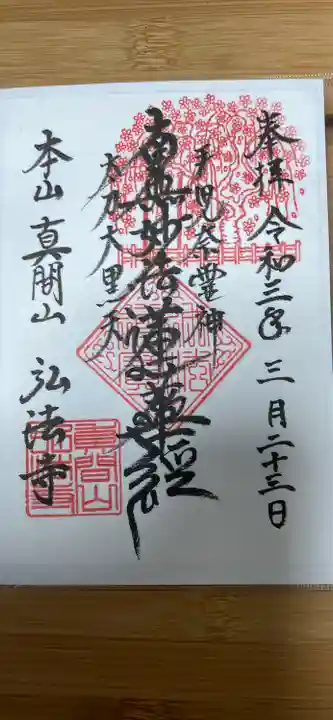 奉拝 令和三年 三月二十三日
手児奈霊神
南無妙法蓮華経
大黒天
本山 真間山 弘法寺